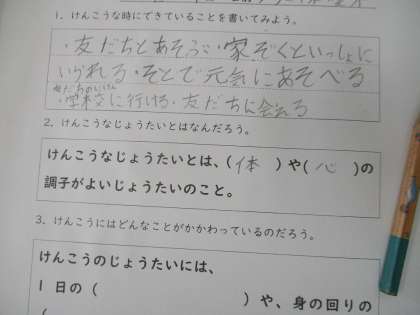 1. けんこうな時にできていることを書いてみよう。
・友だちとあそぶ・家ぞくといっしょに
いられる・そとで元気にあそべる
・学校に行ける・友だちに会える
2. けんこうなじょうたいとはなんだろう。
けんこうなじょうたいとは、(体)や(心)の
調子がよいじょうたいのこと。
3. けんこうにはどんなことがかかわっているのだろう。
けんこうのじょうたいには、
1日の(　　　)や、身の回りの